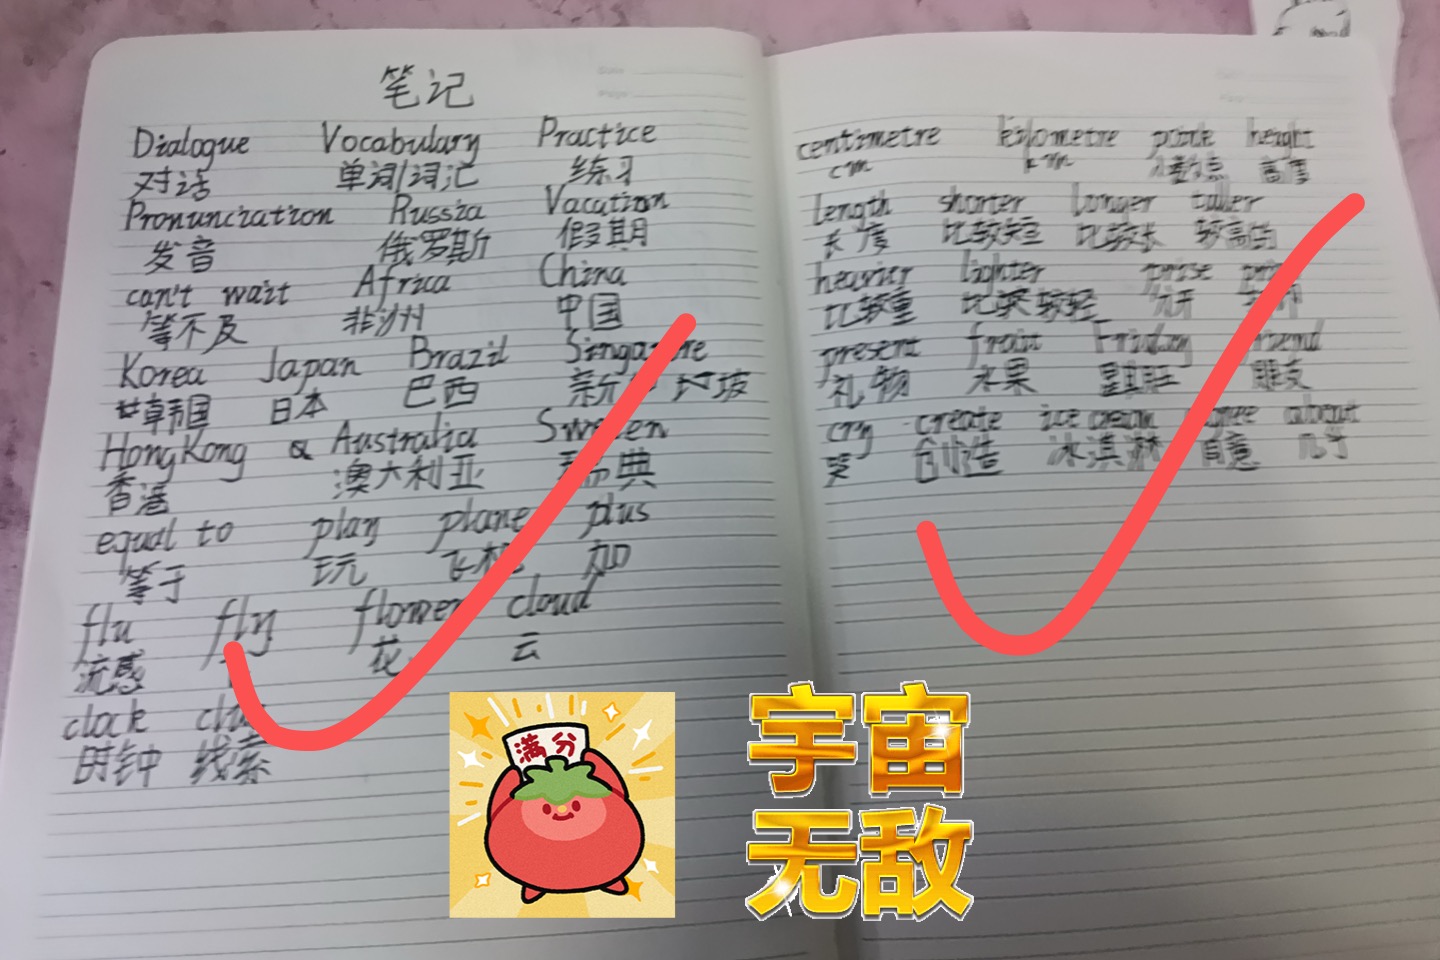 笔记
Dialogue Vocabulary Practice
对话 单词/词汇 练习
Pronunciation Russia Vacation
发音 俄罗斯 假期
can't wait Africa China
等不及 非洲 中国
Korea Japan Brazil
韩国 日本 巴西 坡
HongKong & Australia
香港 澳大利亚 典
equal to plan plane plus
等于 玩 加
flu fly flower cloud
流感 花 云
clock
时钟 线索
centimetre kilometre height
cm km 高度
length shorter longer taller
长度 比较短 比较长 较高的
heavier lighter prise
比较重 较轻
present Friday
礼物 水果
cry create ice cream about
哭 创造 冰淇淋
满分
宇宙
无敌